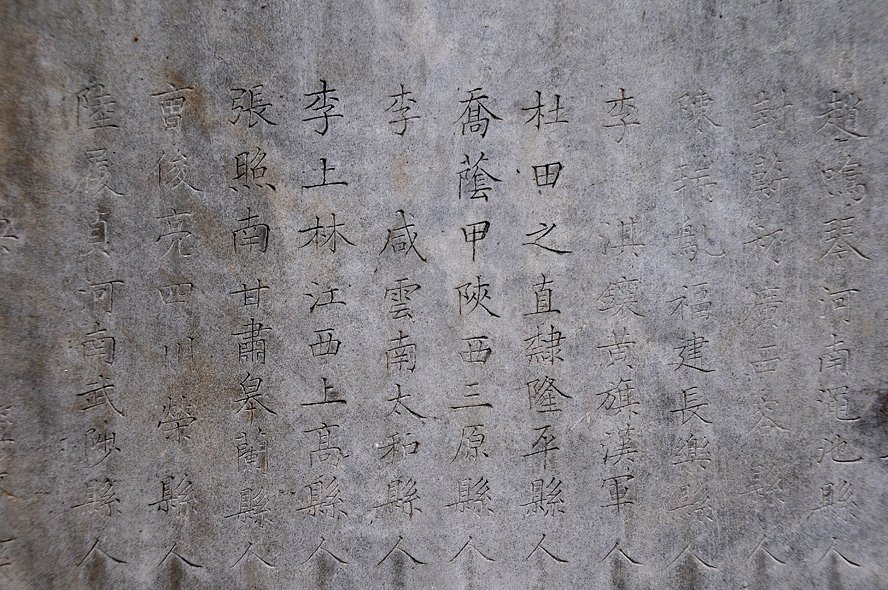 趙鳴琴河南澠池縣人
封蔚礽廣西容縣人
陳瑞胤福建長樂縣人
李淇鑲黃旗漢軍人
杜田之直隸隆平縣人
喬蔭甲陝西三原縣人
李咸雲南太和縣人
李上林江西上高縣人
張照南甘肅皋蘭縣人
曹俊亮四川榮縣人
陸履貞河南武陟縣人